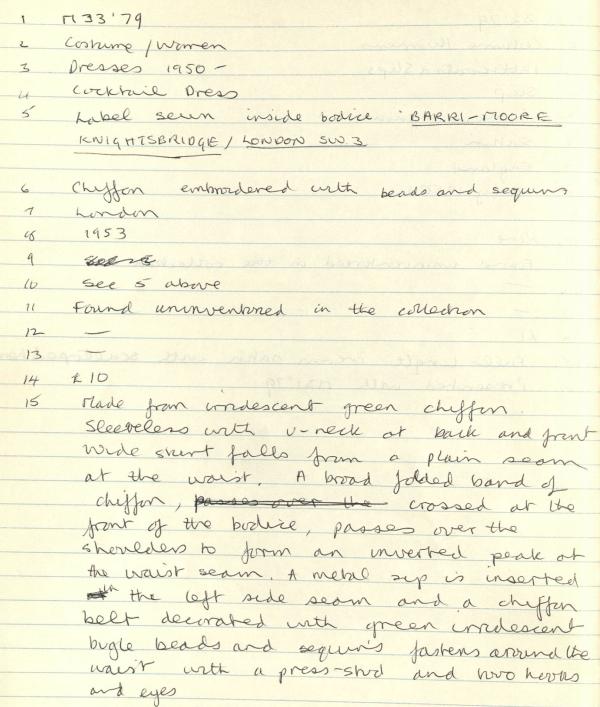 1 M33'79
2 Costume / Women
3 Dresses 1950 –
4 Cocktail Dress
5 Label sewn inside bodice BARRI-MOORE
KNIGHTSBRIDGE / LONDON SW.3
6 Chiffon embroidered with beads and sequins
7 London
8 1953
9
10 See 5 above
11 Found uninventoried in the collection
12 —
13 —
14 £10
15 Made from irridescent green chiffon.
Sleeveless with U-neck at back and front
Wide skirt falls from a plain seam
at the waist. A broad folded band of
chiffon, passes over the crossed at the
front of the bodice, passes over the
shoulders to form an inverted peak at
the waist seam. A metal zip is inserted
in the left side seam and a chiffon
belt decorated with green irridescent
bugle beads and sequins fastens around the
waist with a press-stud and two hooks
and eyes